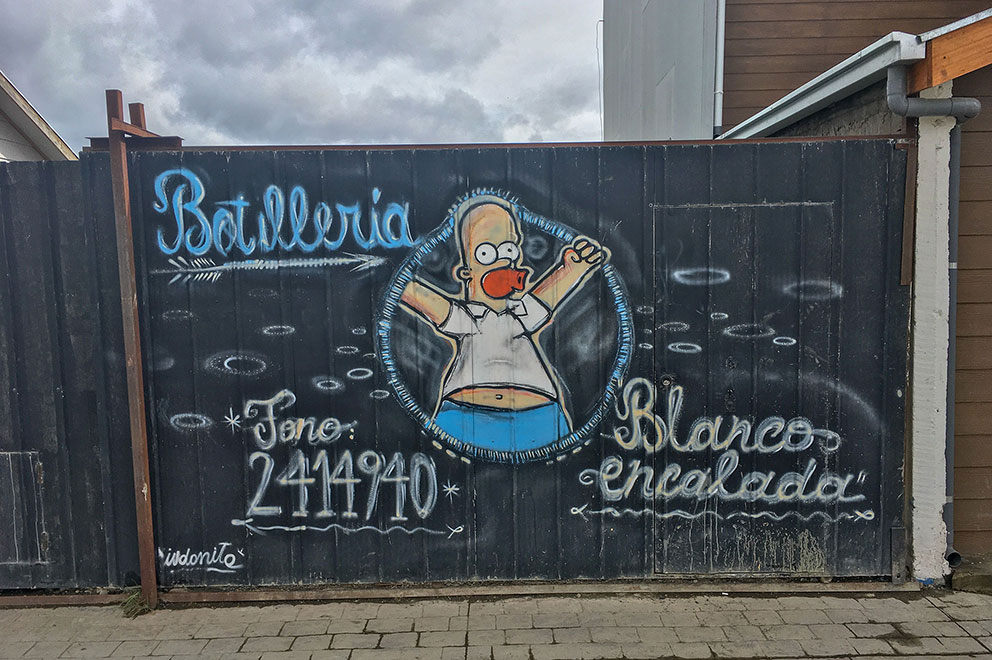 Botilleria
Fono:
2414940
Blanco
encalada